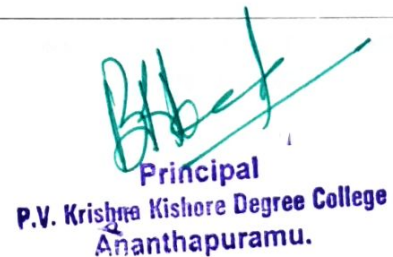 Principal
P.V. Krishna Kishore Degree College
Ananthapuramu.